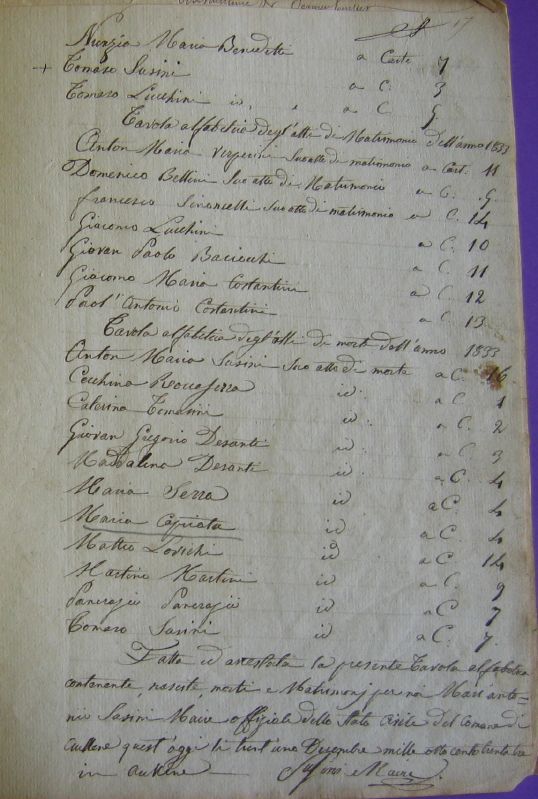 17
Nunzia Maria Benedetti a Carte 7
+ Tomaso Susini a C. 3
Tomaso Lucchini id. a C. 5
Tavola alfabetica degl'atti di Matrimonio dell'anno 1833
Anton Maria suo atto di matrimonio a Cart. 11
Domenico Bettini suo atto di Matrimonio a C. 9
Francesco Simonetti suo atto di matrimonio a C. 14
Giacomo Lucchini a C. 10
Giovan Paolo Baciocchi a C. 11
Giacomo Maria Costantini a C. 12
Paol'Antonio Costantini a C. 13
Tavola alfabetica degl'atti di morte dell'anno 1833
Anton Maria Susini suo atto di morte a C. 16
Cecchina Roccaserra id. a C. 1
Caterina Tomasini id. a C. 2
Giovan Gregorio Desanti id. a C. 3
Maddalina Desanti id. a C. 4
Maria Serra id a C. 4
Maria Capiata id a C. 4
Matteo Lovichi id a C. 14
Martino Martini id a C. 9
Pancrazio Pancrazii id a C. 7
Tomaso Susini id a C. 7.
Fatta ed arrestata la presente Tavola alfabetica
contenente, nascite, morti e Matrimonj per noi Marc'anto-
nio Susini Maire offiziale dello Stato Civile del Comune di
Aullene quest'oggi li trent'uno Dicembre mille otto cento trenta tre
in Aullene. Susini Maire